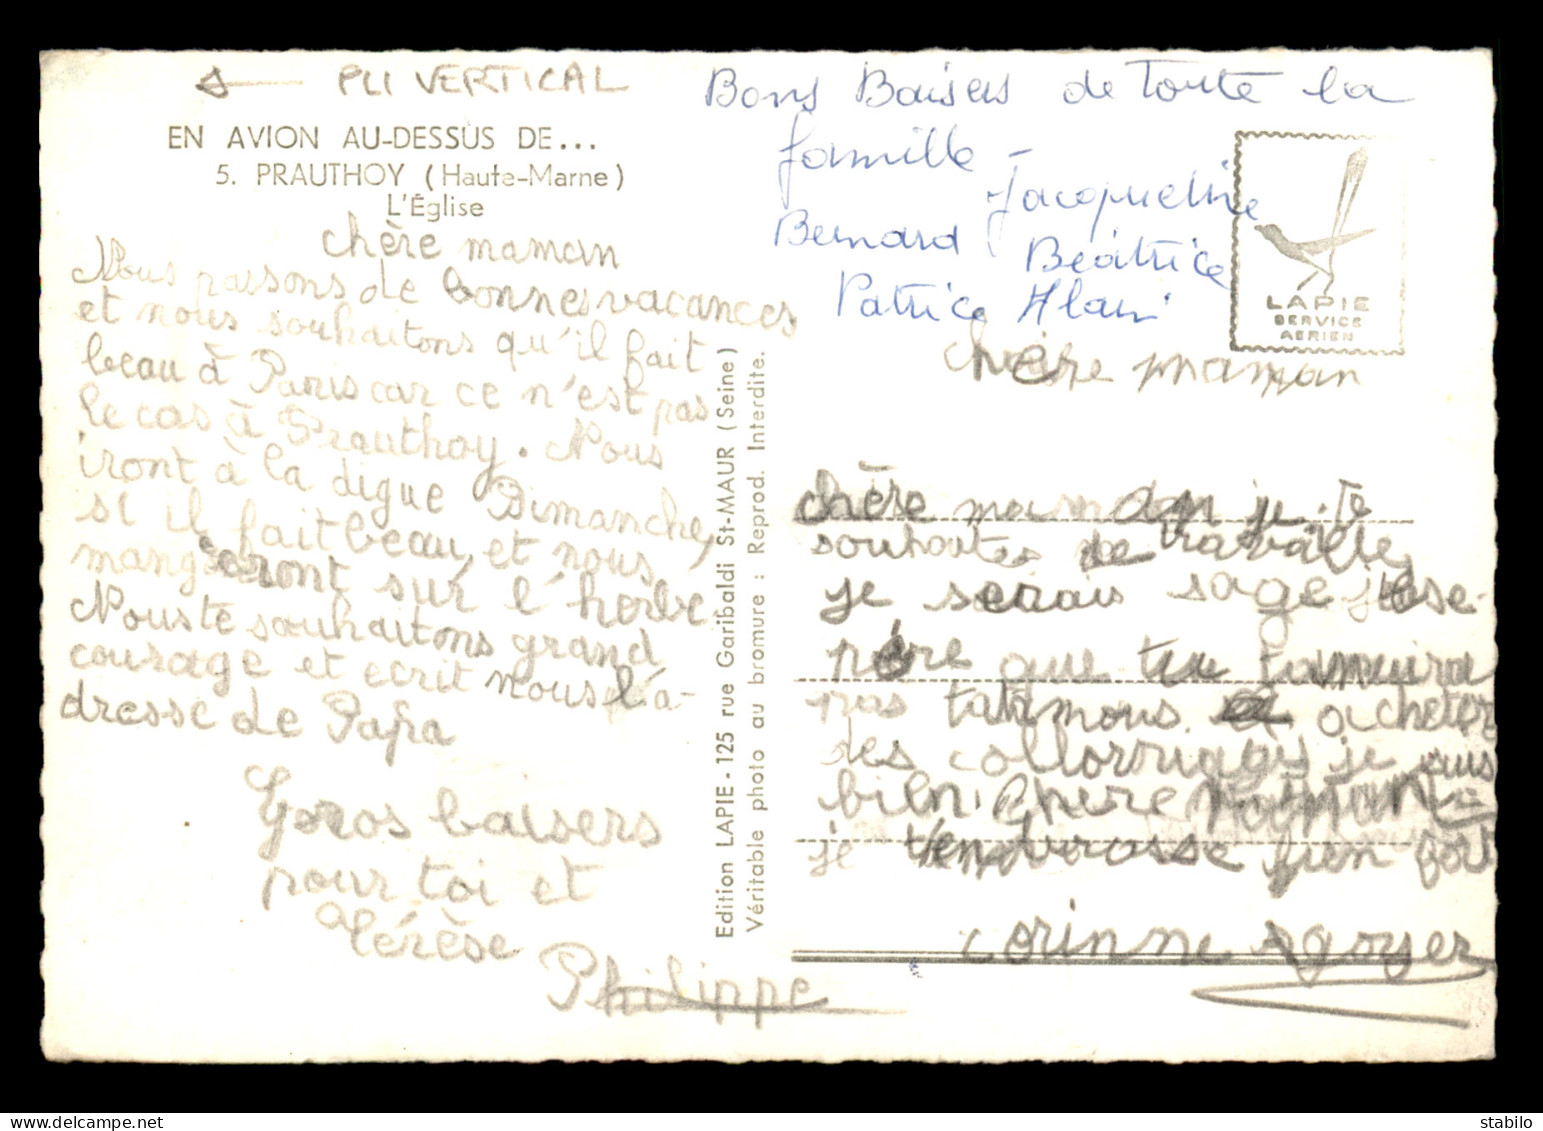 PLI VERTICAL
EN AVION AU-DESSUS DE...
5. PRAUTHOY (Haute-Marne)
L'Église
chère maman
Nous passons de bonnes vacances
et nous souhaitons qu'il fait
beau à Paris car ce n'est pas
le cas à Prauthoy. Nous
iront à la digue Dimanche,
si il fait beau, et nous
mangeront sur l'herbe
Nous te souhaitons grand
courage et ecrit nous l'a-
dresse de Papa
Gros baisers
pour toi et
Philippe
Edition LAPIE - 125 rue Garibaldi St-MAUR (Seine)
Véritable photo au bromure : Reprod. Interdite.
Bons Baisers de Toute la
famille -
Jacqueline
Bernard Beatrice
Patrice Alain
LAPIE
SERVICE
AERIEN
chère maman
chère maman je te
souhaites de travaille
je serais sage j'ese-
père que tu
pas acheter
des je
bien chere maman
je bien fort
corinne
www.delcampe.net
stabilo